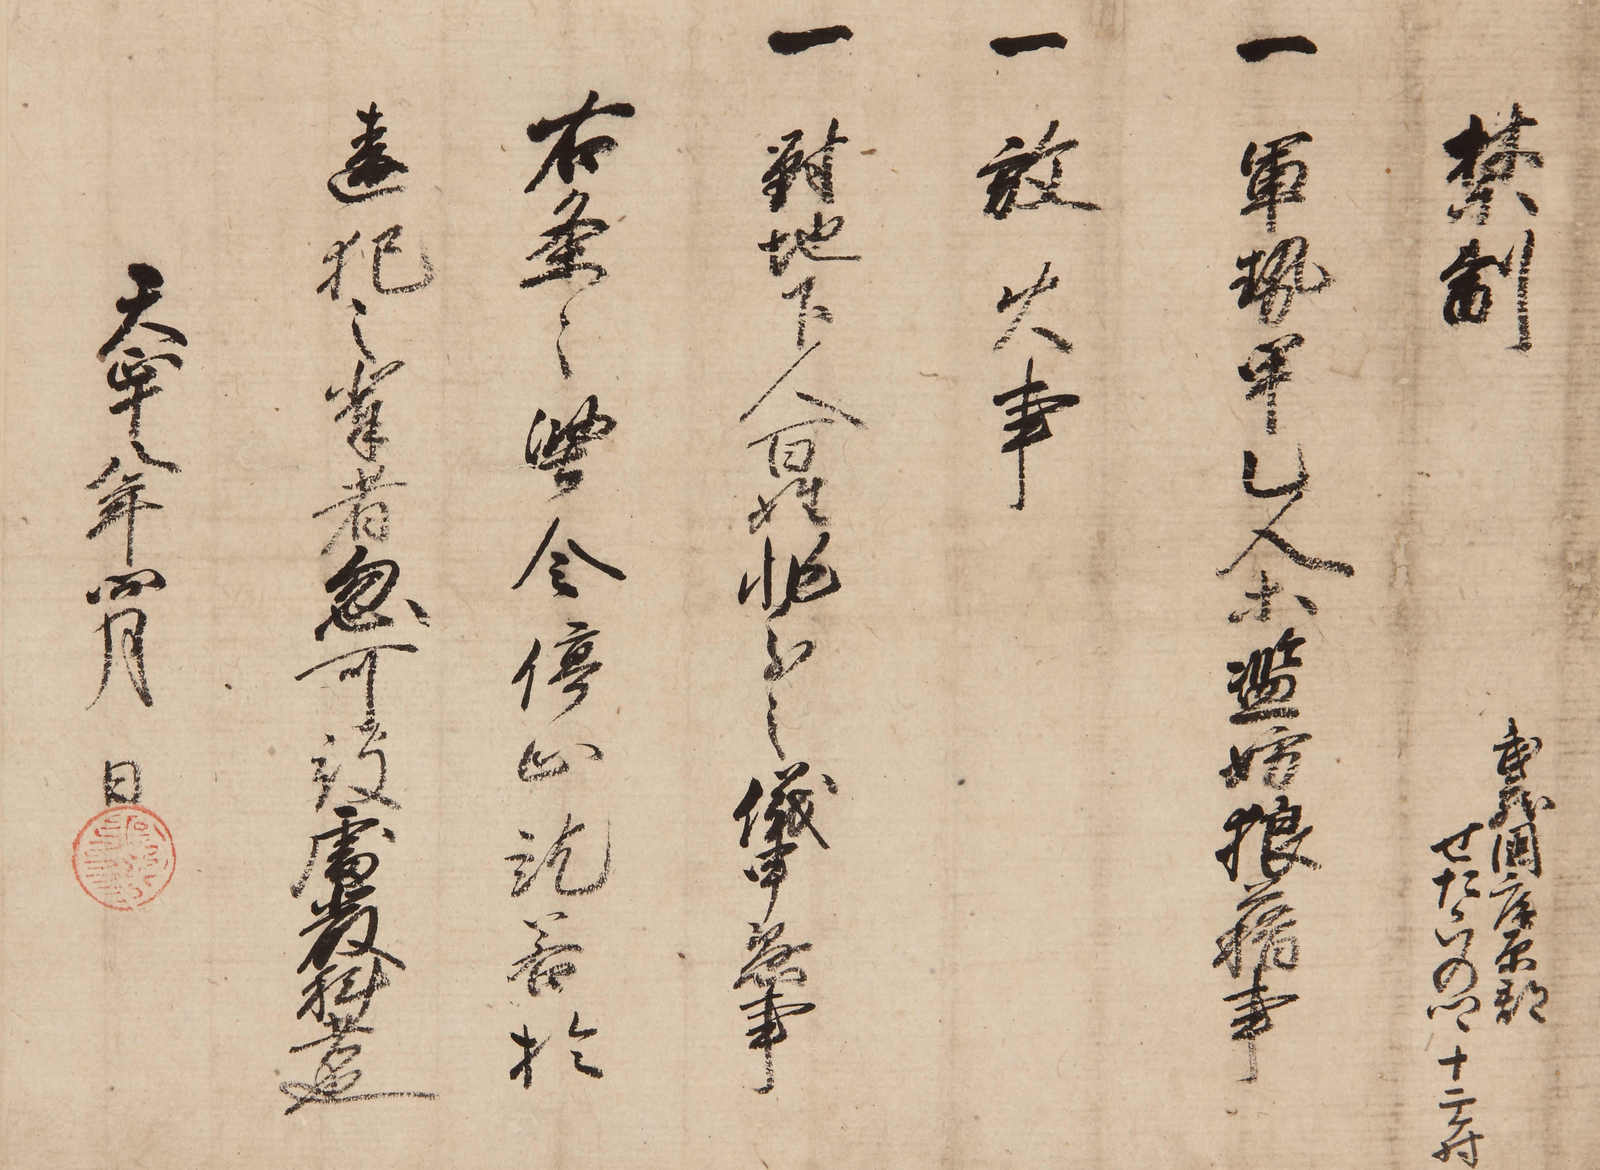 禁制
武蔵国荏原郡
せた 十二ヶ村
一 軍勢甲乙人等濫妨狼藉事
一 放火事
一 對地下人百姓非分之儀申懸事
右条々堅令停止訖若於
違犯之輩者忽可被處嚴科者也
天正十八年四月 日